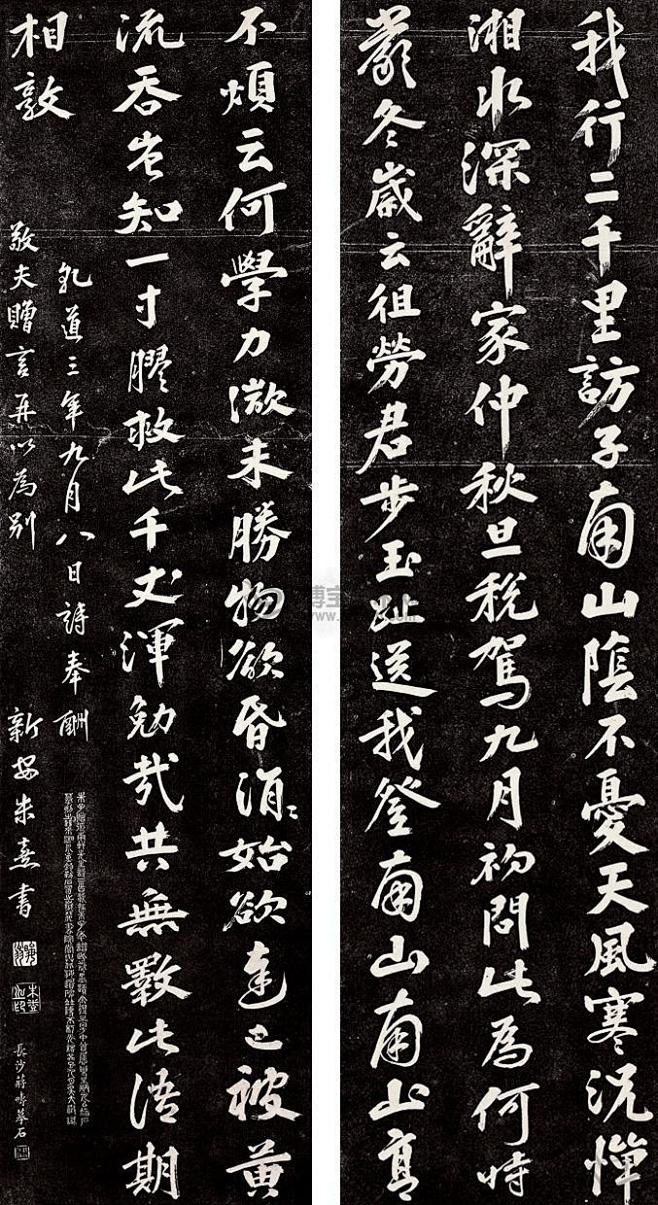 我行二千里訪子南山陰不憂天風寒況憚
湘水深辭家仲秋旦稅駕九月初問此為何時
嚴冬歲云徂勞君步玉趾送我登南山南山高
不煩云何學力微未勝物欲昏涓〻始欲達已被黄
流吞豈知一寸膠救此千丈渾勉哉共無斁此語期
相敦
乾道三年九月八日詩奉酬
敬夫贈言再以為别 新安朱熹書
長沙蔣 摹石